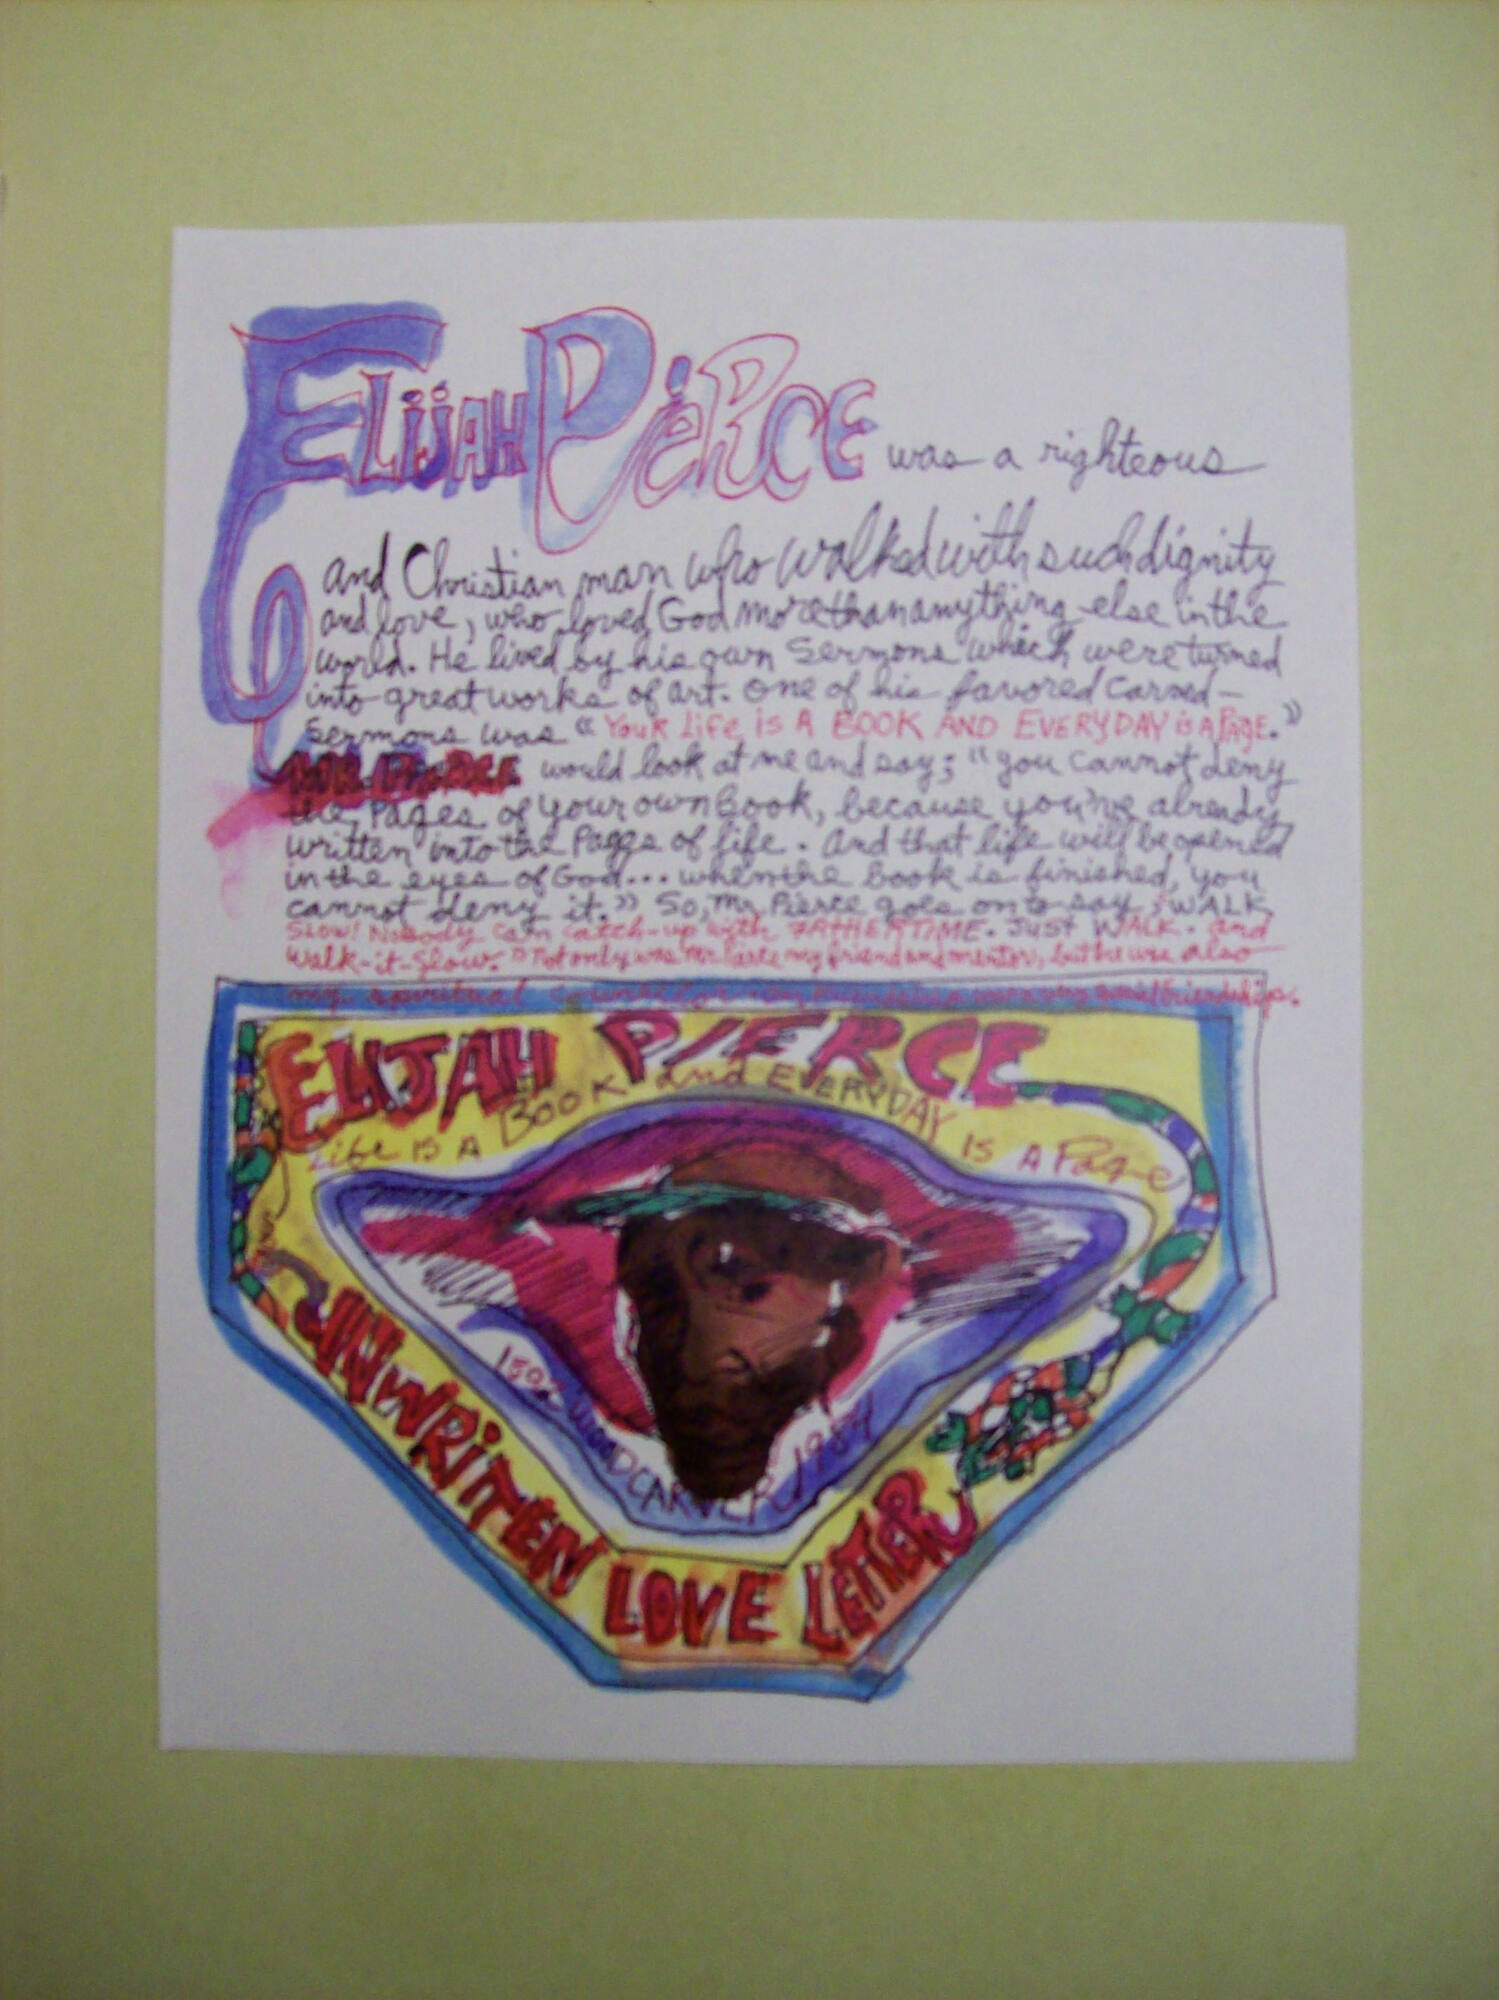 Elijah Pierce was a righteous
and Christian man who walked with such dignity
and love, who loved God more than anything else in the
world. He lived by his own Sermons which were turned
into great works of art. One of his favored carved-
Sermons was "Your Life is A BOOK AND EVERYDAY is A PAGE."
MR. PIERCE would look at me and say; "you cannot deny
the Pages of your own Book, because you've already
written into the Pages of life. And that life will be opened
in the eyes of God... when the book is finished, you
cannot deny it." So, Mr. Pierce goes on to say, "WALK
SLOW! Nobody can catch-up with FATHERTIME. JUST WALK. and
Walk-it-Slow." Not only was Mr. Pierce my friend and mentor, but he was also
my spiritual counselor friendships.
ELIJAH PIERCE
Life IS A BOOK and EVERYDAY IS A Page
WOODCARVER
UNWRITTEN LOVE LETTER